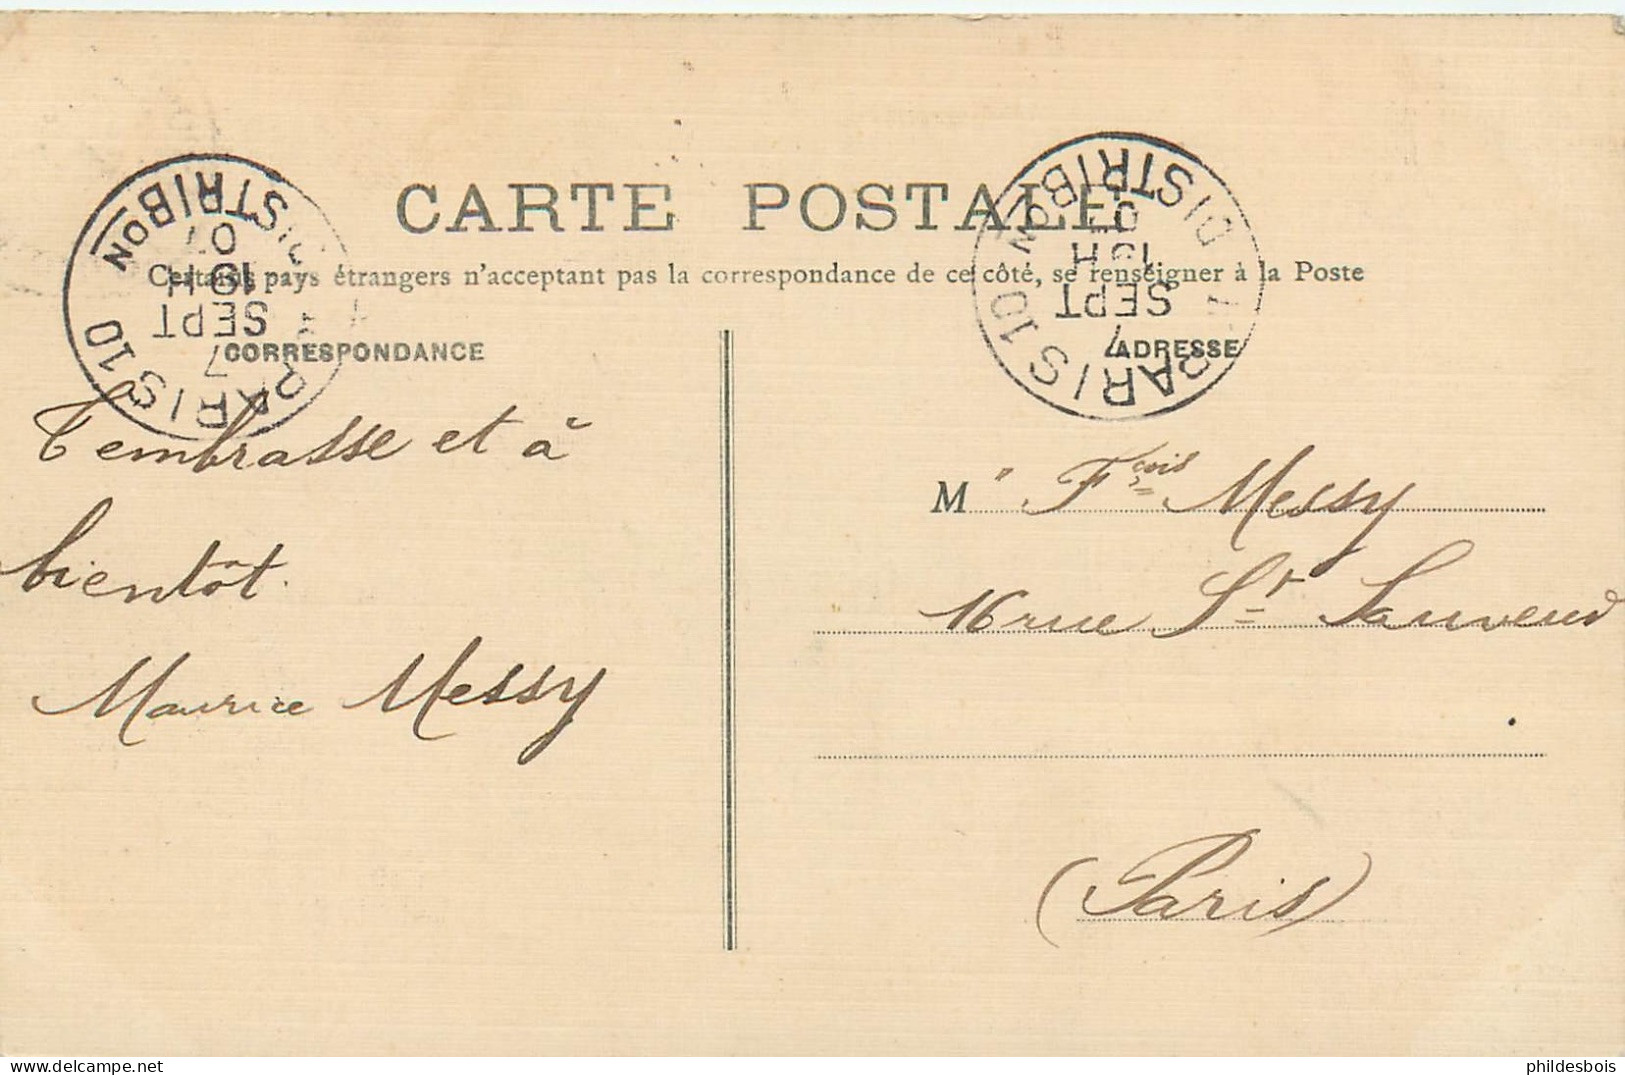 CARTE POSTALE
Certains pays étrangers n'acceptent pas la correspondance de ce côté, se renseigner à la Poste
CORRESPONDANCE
ADRESSE
PARIS 10 DISTRIBON
7
SEPT
19H
07
PARIS 10 DISTRIBON
7
SEPT
19H
07
T'embrasse et à
bientôt.
Maurice Messy
M" Fçois Messy
16 rue St Sauveur
(Paris)
phildesbois